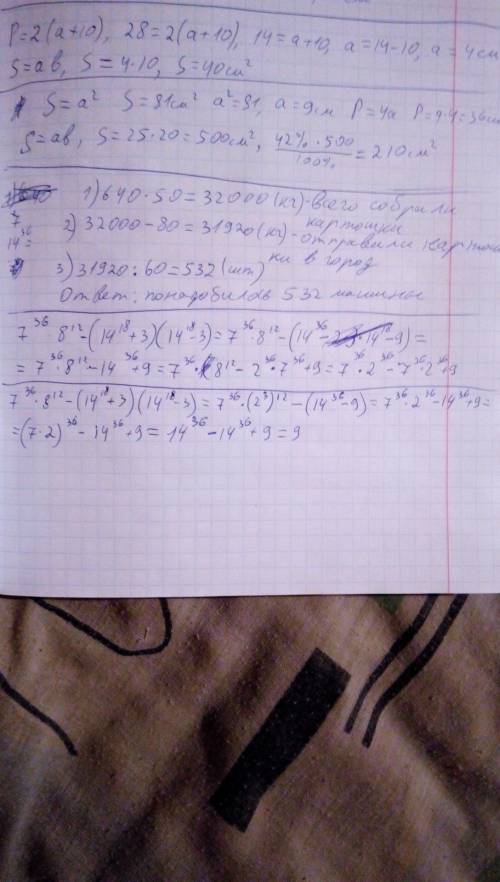 P=2(a+10), 28=2(a+10), 14=a+10, a=14-10, a=4см
S=ab, S=4·10, S=40см²
S=a² S=81см² a²=81, a=9см P=4a P=9·4=36см
S=ab, S=25·20=500см², 42%·500/100%=210см²
1) 640·50=32000(кг)-всего собрали
картошки
7³⁶
14=
2) 32000-80=31920(кг)-отправили карто
ки в город
3) 31920:60=532(шт)
Ответ: понадобилось 532 машины
7³⁶·8¹²-(14¹⁸+3)(14¹⁸-3)=7³⁶·8¹²-(14³⁶-9)=
=7³⁶·8¹²-14³⁶+9=7³⁶·8¹²-2³⁶·7³⁶+9=7³⁶·2³⁶-7³⁶·2³⁶+9
7³⁶·8¹²-(14¹⁸+3)(14¹⁸-3)=7³⁶·(2³)¹²-(14³⁶-9)=7³⁶·2³⁶-14³⁶+9=
=(7·2)³⁶-14³⁶+9=14³⁶-14³⁶+9=9